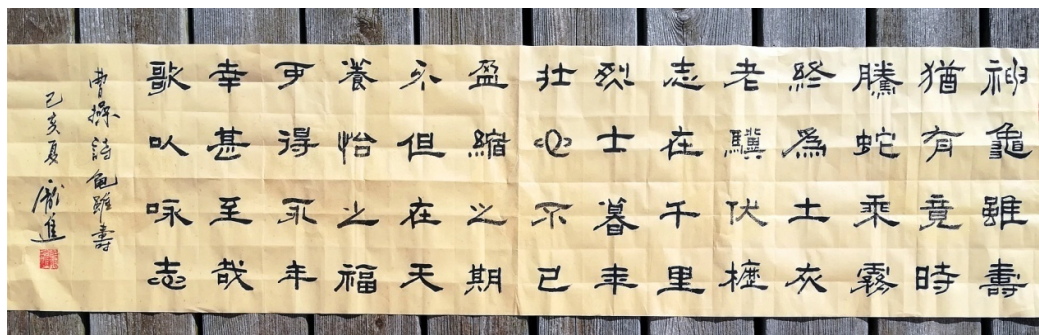 神龜雖壽
猶有竟時
騰蛇乘霧
終爲土灰
老驥伏櫪
志在千里
烈士暮年
壯心不已
盈縮之期
不但在天
養怡之福
可得永年
幸甚至哉
歌以咏志
曹操詩龜雖壽
己亥夏 龐進